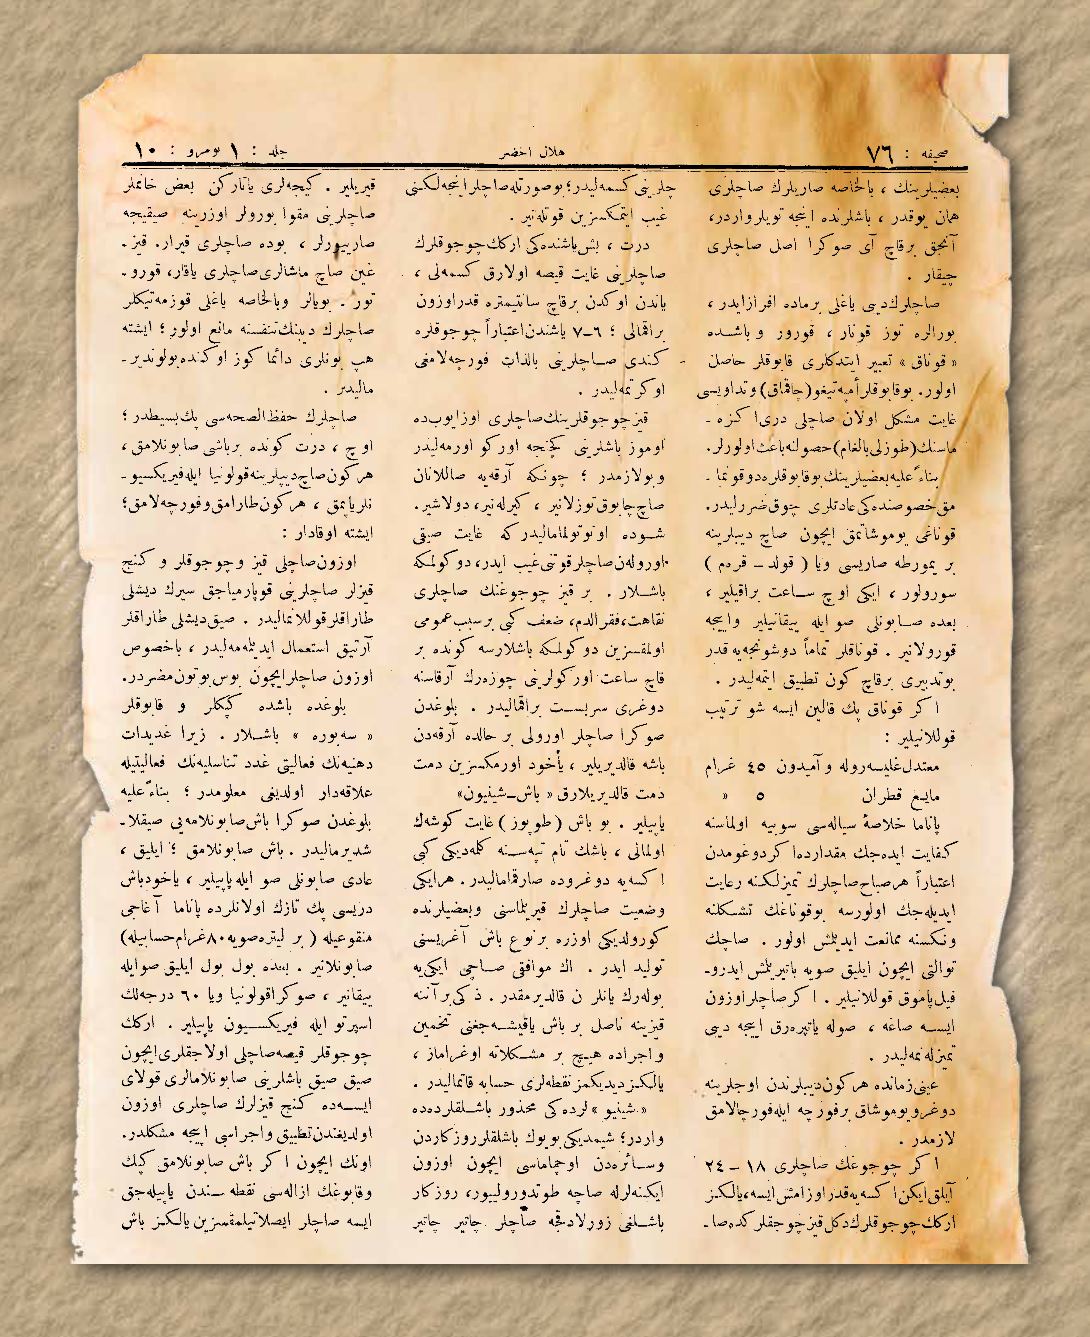 صحیفه : ٧٦
هلال اخضر
جلد : ١ نومرو : ١٠
بعضیلرینك ، بالخاصه صاریلرك صاچلری
همان یوقدر ، باشلرنده اینجه تویلر واردر،
آنجق برقاچ آی صوكرا اصل صاچلری
چیقار .
صاچلرك دیبی یاغلی برماده افراز ایدر ،
بورالره توز قونار ، قورور و باشده
« قوناق » تعبیر ایتدكلری قابوقلر حاصل
اولور. بوقابوقلر أمپه تیغو (چاقماق) و تداویسی
غایت مشكل اولان صاچلی دری اكزه ـ
ماسنك (طوزلی بالغام) حصولنه باعث اولورلر.
بناءً علیه بعضیلرینك بوقابوقلره دوقونما ـ
مق خصوصنده كی عادتلری چوق ضررلیدر.
قوناغی یوموشاتمق ایچون صاچ دیبلرینه
بر یمورطه صاریسی ویا ( قولد ـ قره م )
سورولور ، ایكی اوچ ساعت براقیلیر ،
بعده صابونلی صو ایله ییقانیلیر و ایجه
قورولانیر . قوناقلر تماماً دوشونجه یه قدر
بوتدبیری برقاچ كون تطبیق ایتمه لیدر .
اكر قوناق پك قالین ایسه شو ترتیب
قوللانیلیر :
معتدل غلیسه روله و آمیدون ٤٥ غرام
مایع قطران ٥ »
پاناما خلاصهٔ سیاله سی سوبیه اولماسنه
كفایت ایده جك مقدارده اكر دوغومدن
اعتباراً هر صباح صاچلرك تمیزلكنه رعایت
ایدیله جك اولورسه بوقوناغك تشكلنه
ونكسنه ممانعت ایدیلمش اولور . صاچك
توالتی ایچون ایلیق صویه باتیریلمش ایدروـ
فیل پاموق قوللانیلیر . اكر صاچلر اوزون
ایسه صاغه ، صوله یاتیره رق اییجه دیبی
تمیزله نمه لیدر .
عینی زمانده هركون دیبلرندن اوجلرینه
دوغرو یوموشاق برفورچه ایله فورچالامق
لازمدر .
اكر چوجوغك صاچلری ١٨ ـ ٢٤
آیلق ایكن اكسه یه قدر اوزامش ایسه، یالكز
اركك چوجوقلرك دكل قیز چوجقلركده صا ـ
چلرینی كسمه لیدر؛ بوصورتله صاچلر اینجه لكنی
غیب ایتمكسزین قوتله نیر .
درت ، بش یاشنده كی اركك چوجوقلرك
صاچلرینی غایت قیصه اولارق كسمه لی ،
یاندن اوكدن برقاچ سانتیمتره قدر اوزون
براقمالی ؛ ٦ـ٧ یاشندن اعتباراً چوجوقلره
كندی صاچلرینی بالذات فورچه لامغی
اوكرتمه لیدر .
قیز چوجوقلرینك صاچلری اوزایوب ده
اوموز باشلرینی كچنجه اوركو اورمه لیدر
وبو لازمدر ؛ چونكه آرقه یه صاللانان
صاچ چابوق توزلانیر ، كیرله نیر، دولاشیر.
شوده اونوتولمامالیدر كه غایت صیقی
اوروله ن صاچلر قوتنی غیب ایدر، دوكولمكه
باشلار . بر قیز چوجوغنك صاچلری
نقاهت، فقرالدم، ضعف كبی بر سبب عمومی
اولمقسزین دوكولمكه باشلارسه كونده بر
قاچ ساعت اوركولرینی چوزه رك آرقاسنه
دوغری سربست براقمالیدر . بلوغدن
صوكرا صاچلر اورولی بر حالده آرقه دن
باشه قالدیریلیر ، یأخود اورمكسزین دمت
دمت قالدیریلارق « باش ـ شینیون»
یاپیلیر . بو باش (طوپوز) غایت كوشه ك
اولمالی ، باشك تام تپه سنه كله دیكی كبی
اكسه یه دوغروده صارقمامالیدر . هر ایكی
وضعیت صاچلرك قیریلماسنی وبعضیلرنده
كورولدیكی اوزره برنوع باش آغریسنی
تولید ایدر . اك موافقی صاچی ایكی یه
بوله رك یانلر ن قالدیرمقدر . ذكی بر آننه
قیزینه ناصل بر باش یاقیشه جغنی تخمین
واجراده هیچ بر مشكلاته اوغراماز ،
یالكز دیدیكمز نقطه لری حسابه قاتمالیدر .
« شینیو » لرده كی محذور باشلقلرده ده
واردر؛ شیمدیكی بویوك باشلقلر روزكاردن
وسائره دن اوچماماسی ایچون اوزون
ایكنه لرله صاچه طوتدورولییور، روزكار
باشلغی زورلادقجه صاچلر چاتیر چاتیر
قیریلیر . كیجه لری یاتاركن بعض خانملر
صاچلرینی مقوا بورولر اوزرینه صیقیجه
صارییورلر ، بوده صاچلری قیرار. قیز ـ
غین صاچ ماشالری صاچلری یاقار، قورو ـ
تور . بویالر وبالخاصه یاغلی قوزمه تیكلر
صاچلرك دیبنك تنفسنه مانع اولور؛ ایشته
هپ بونلری دائما كوز اوكنده بولوندیر ـ
مالیدر .
صاچلرك حفظ الصحه سی پك بسیطدر ؛
اوچ ، درت كونده بر باشی صابونلامق ،
هركون صاچ دیپلرینه قولونیا ایله فیریكسیو ـ
نلر یاپمق ، هركون طارامق وفورچه لامق؛
ایشته اوقادار :
اوزون صاچلی قیز وچوجوقلر و كنج
قیزلر صاچلرینی قوپارمیاجق سیرك دیشلی
طاراقلر قوللانمالیدر . صیق دیشلی طاراقلر
آرتیق استعمال ایدیلمه مه لیدر ، باخصوص
اوزون صاچلر ایچون بوس بوتون مضردر.
بلوغده باشده كپكلر و قابوقلر
« سه بوره » باشلار . زیرا غدیدات
دهنیه نك فعالیتی غدد تناسلیه نك فعالیتیله
علاقه دار اولدیغی معلومدر ؛ بناءً علیه
بلوغدن صوكرا باش صابونلامه یی صیقلا ـ
شدیرمالیدر . باش صابونلامق ؛ ایلیق ،
عادی صابونلی صو ایله یاپیلیر ، یاخود باش
دریسی پك نازك اولانلرده پاناما آغاجی
منقوعیله ( بر لیتره صویه ٨٠ غرام حسابیله)
صابونلانیر . بعده بول بول ایلیق صو ایله
ییقانیر ، صوكرا قولونیا ویا ٦٠ درجه لك
اسپرتو ایله فیریكسیون یاپیلیر . اركك
چوجوقلر قیصه صاچلی اولاجقلری ایچون
صیق صیق باشلرینی صابونلامالری قولای
ایسه ده كنج قیزلرك صاچلری اوزون
اولدیغندن تطبیق واجراسی اییجه مشكلدر.
اونك ایچون اكر باش صابونلامق كپك
وقابوغك ازاله سی نقطه سندن یاپیله جق
ایسه صاچلر ایصلاتیلمقسزین یالكز باش